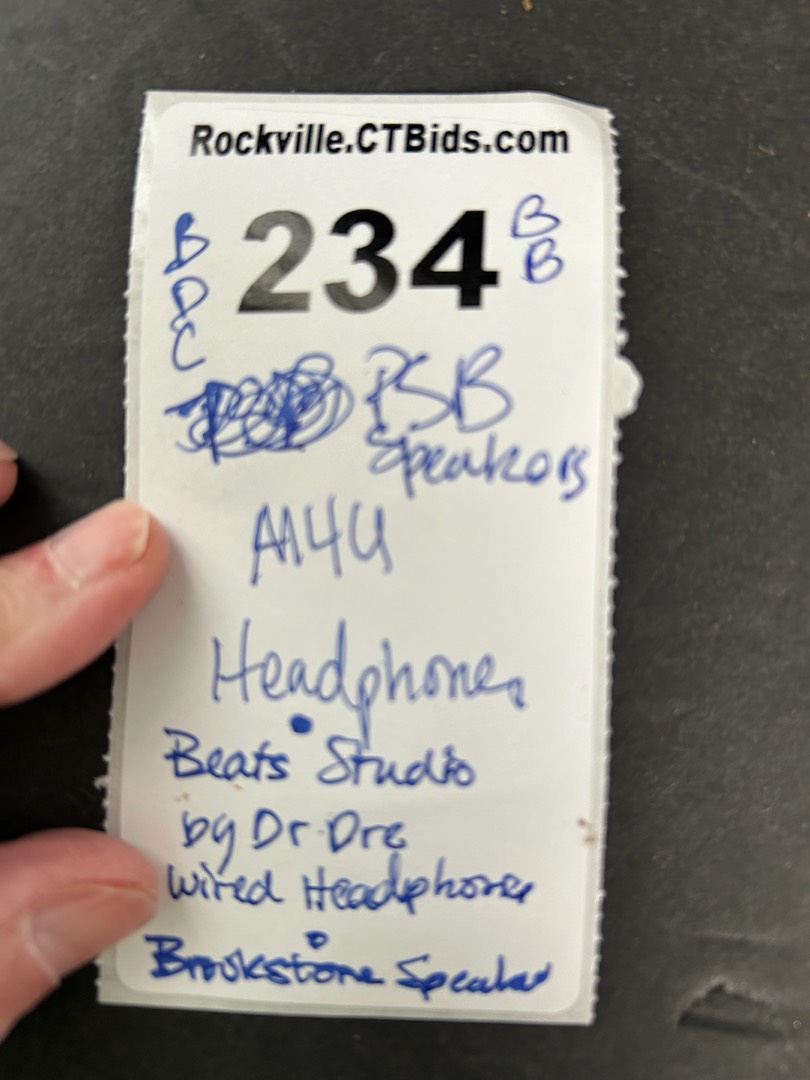 Rockville.CTBids.com
234
B
B
PSB
Speakers
M4U
Headphones
Beats Studio
by Dr. Dre
Wired Headphones
Brookstone Speaker